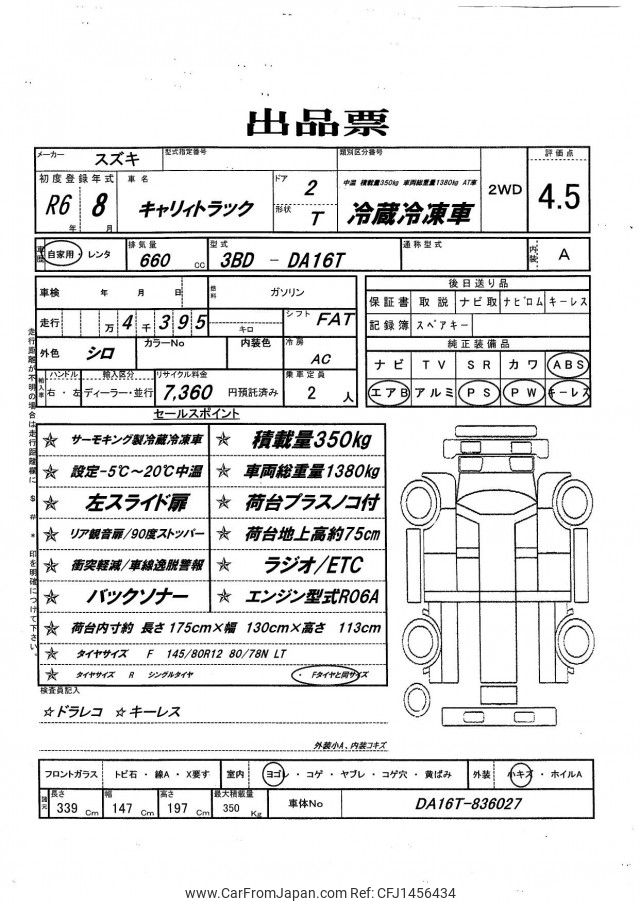 出品票
メーカー スズキ 型式指定番号 類別区分番号 評価点
初度登録年式 車名 ドア 2 中温 積載量350kg 車両総重量1380kg AT車 2WD 4.5
R6年 8月 キャリィトラック 形状 T 冷蔵冷凍車
車歴 自家用・レンタ 排気量 660cc 型式 3BD - DA16T 通称型式 内装 A
車検 年 月 日 燃料 ガソリン 後日送り品
保証書 取説 ナビ取 ナビロム キーレス
走行 万4千395 キロ シフト FAT 記録簿 スペアキー
外色 シロ カラーNo 内装色 冷房 AC 純正装備品
ナビ TV SR カワ ABS
輸入車 ハンドル 右・左 輸入区分 ディーラー・並行 リサイクル料金 7,360 円預託済み 乗車定員 2人 エアB アルミ PS PW キーレス
走行距離が不明の場合は走行距離欄に $ # * 印を明確につけて下さい。
セールスポイント
☆ サーモキング製冷蔵冷凍車 ☆ 積載量350kg
☆ 設定-5℃~20℃中温 ☆ 車両総重量1380kg
☆ 左スライド扉 ☆ 荷台プラスノコ付
☆ リア観音扉/90度ストッパー ☆ 荷台地上高約75cm
☆ 衝突軽減/車線逸脱警報 ☆ ラジオ/ETC
☆ バックソナー ☆ エンジン型式R06A
☆ 荷台内寸約 長さ175cm×幅 130cm×高さ 113cm
☆ タイヤサイズ F 145/80R12 80/78N LT
☆ タイヤサイズ R シングルタイヤ ・ Fタイヤと同サイズ
検査員記入
☆ドラレコ ☆キーレス
外装小A、内装コキズ
フロントガラス トビ石・線A・X要す 室内 ヨゴレ・コゲ・ヤブレ・コゲ穴・黄ばみ 外装 小キズ・ホイルA
諸元 長さ 339 Cm 幅 147 Cm 高さ 197 Cm 最大積載量 350 Kg 車体No DA16T-836027
www.CarFromJapan.com Ref: CFJ1456434